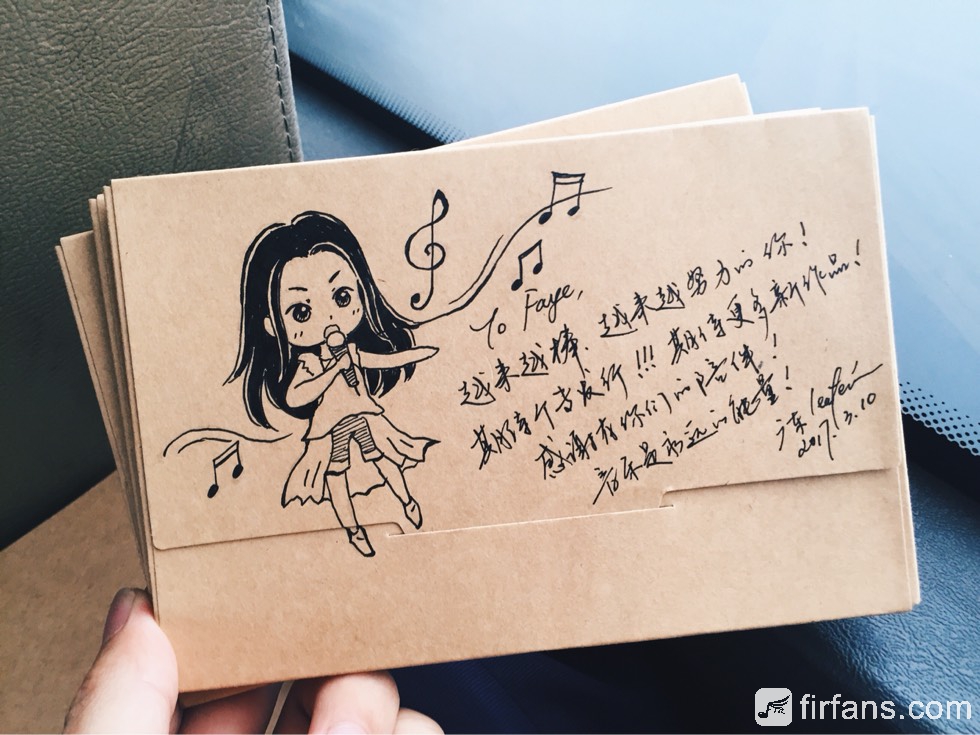 To Fayee,
越来越棒、越来越努力的你！
期待新专发行!!! 期待更多新作品！
感谢有你们的陪伴！
音乐是永远的能量！
广东
2017.3.10
firfans.com